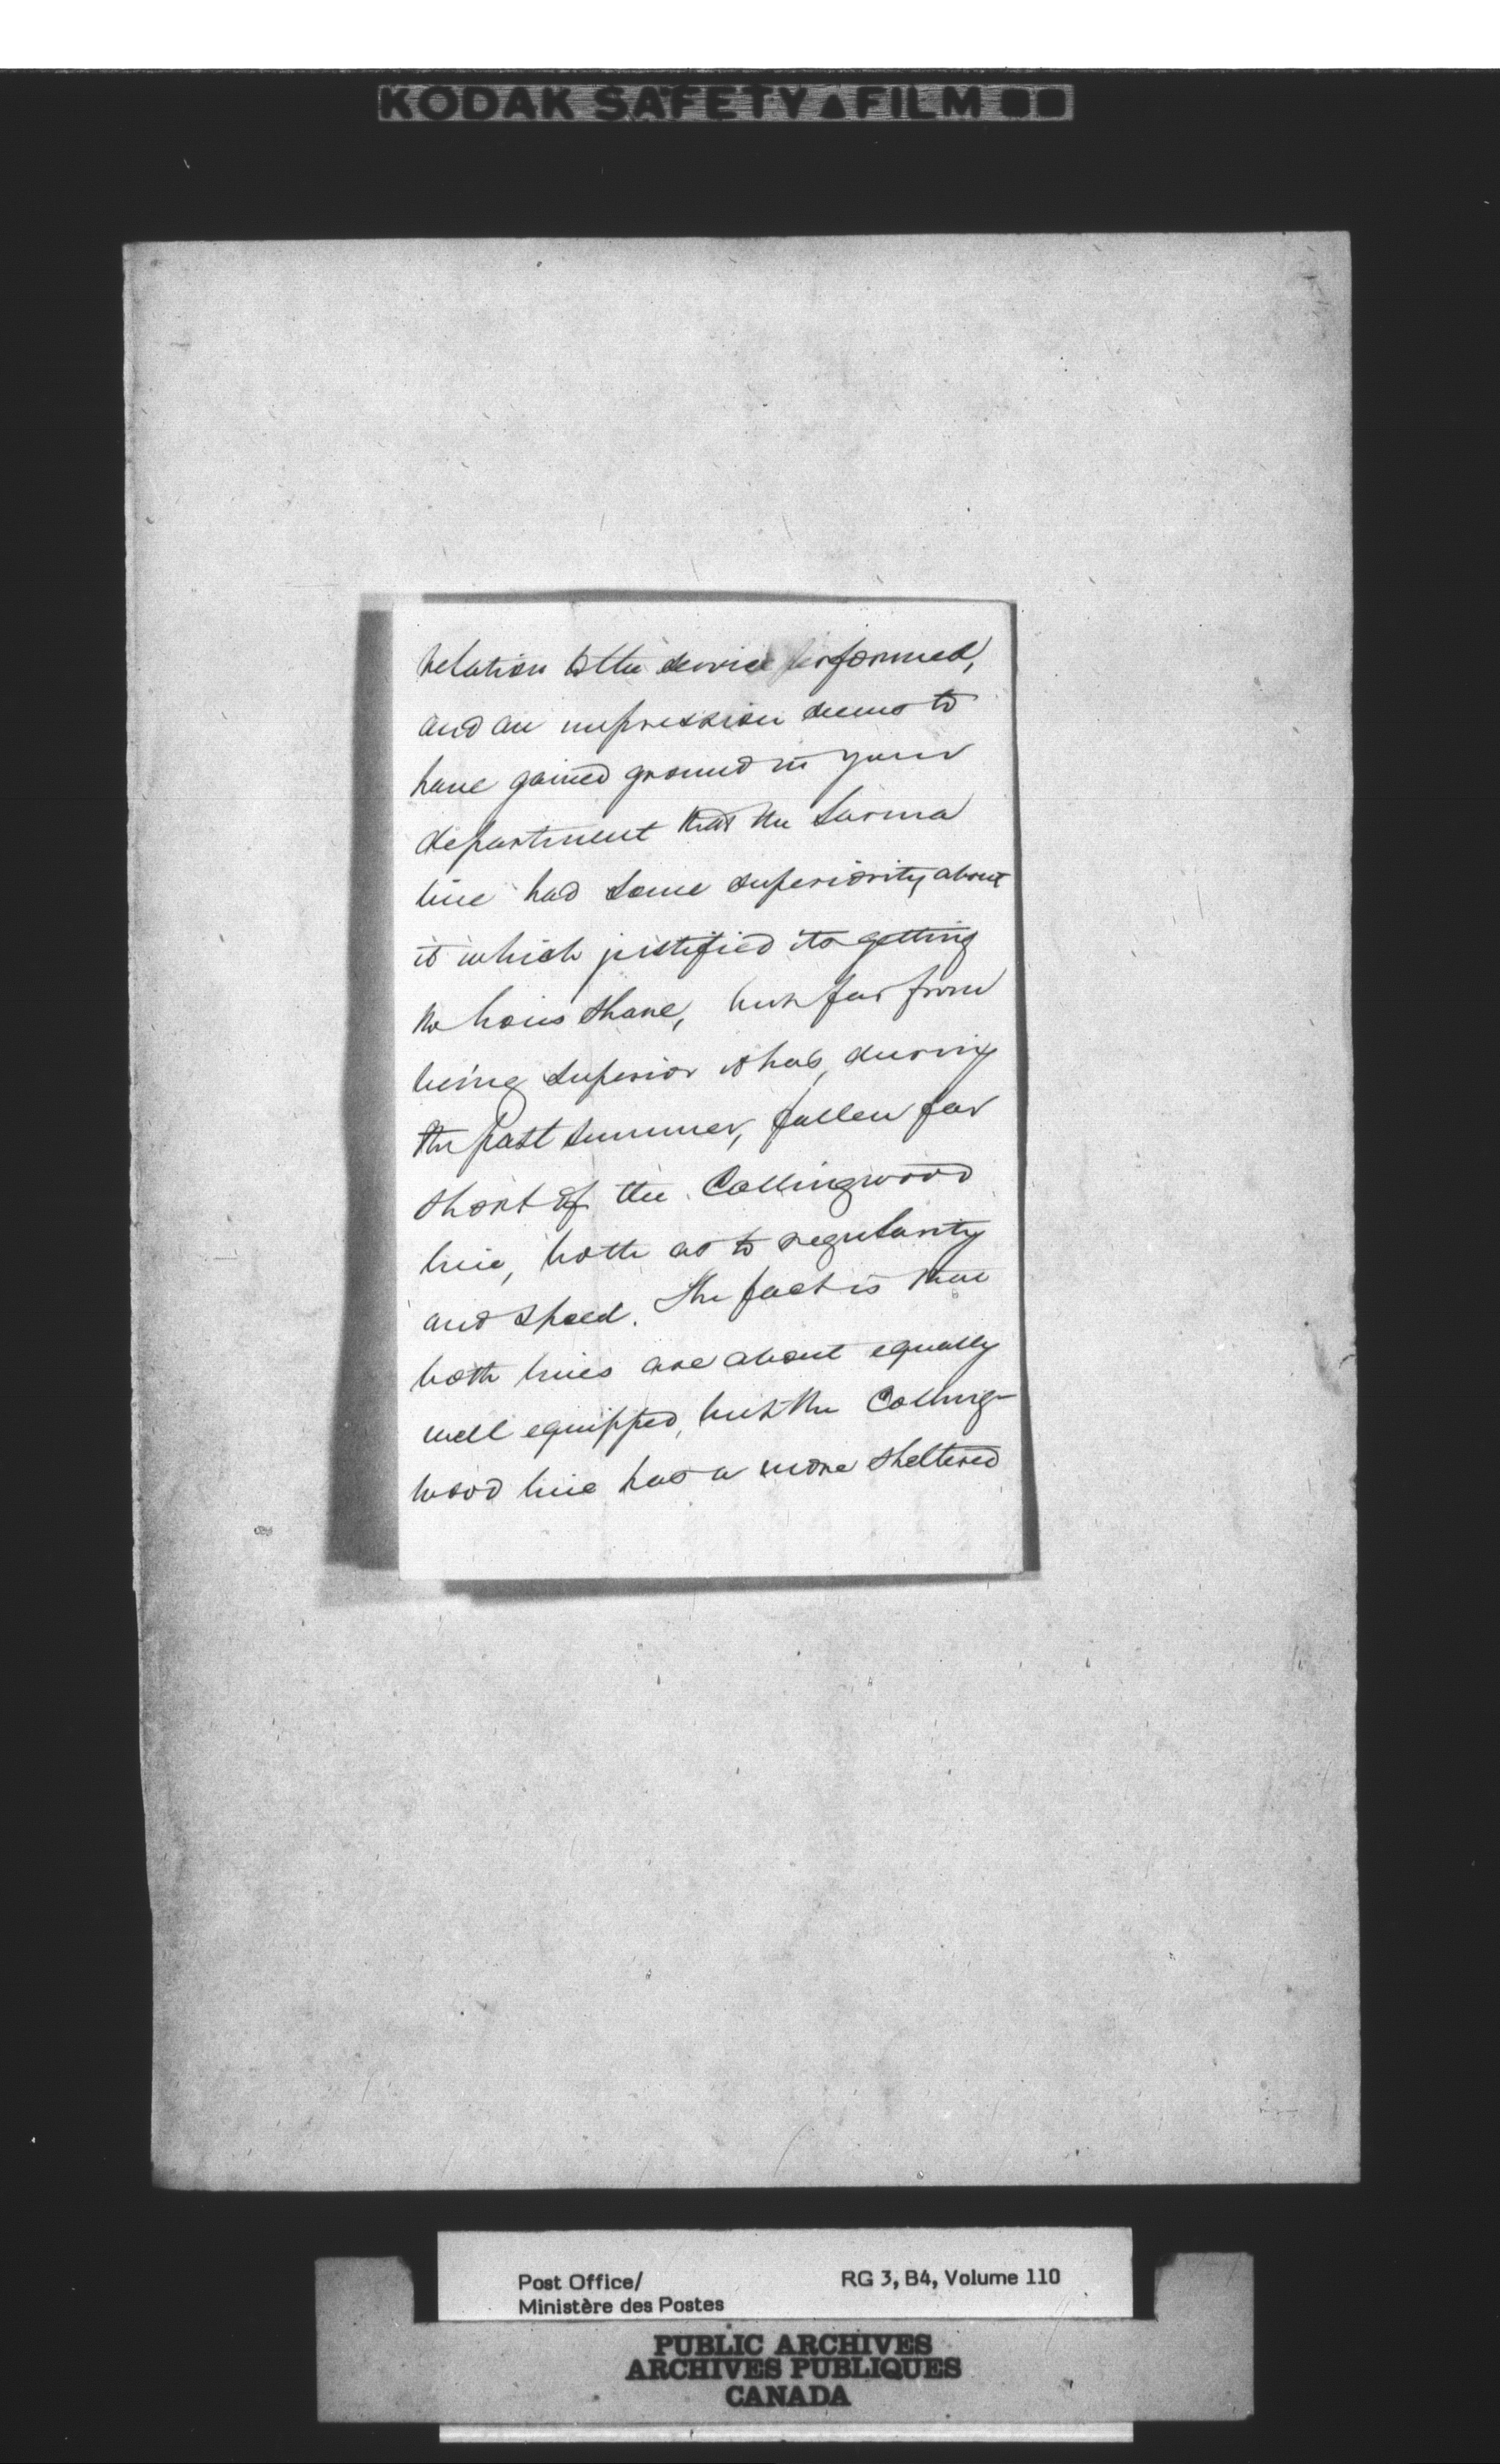 KODAK SAFETY FILM
relation to the service performed,
and an impression seems to
have gained ground in your
department that the Sarnia
line had some superiority about
it which justified its getting
the lions share, but far from
being superior it has, during
the past summer, fallen far
short of the Collingwood
line, both as to regularity
and speed. The fact is that
both lines are about equally
well equipped, but the Colling-
wood line has a more sheltered
Post Office/ RG 3, B4, Volume 110
Ministère des Postes
PUBLIC ARCHIVES
ARCHIVES PUBLIQUES
CANADA